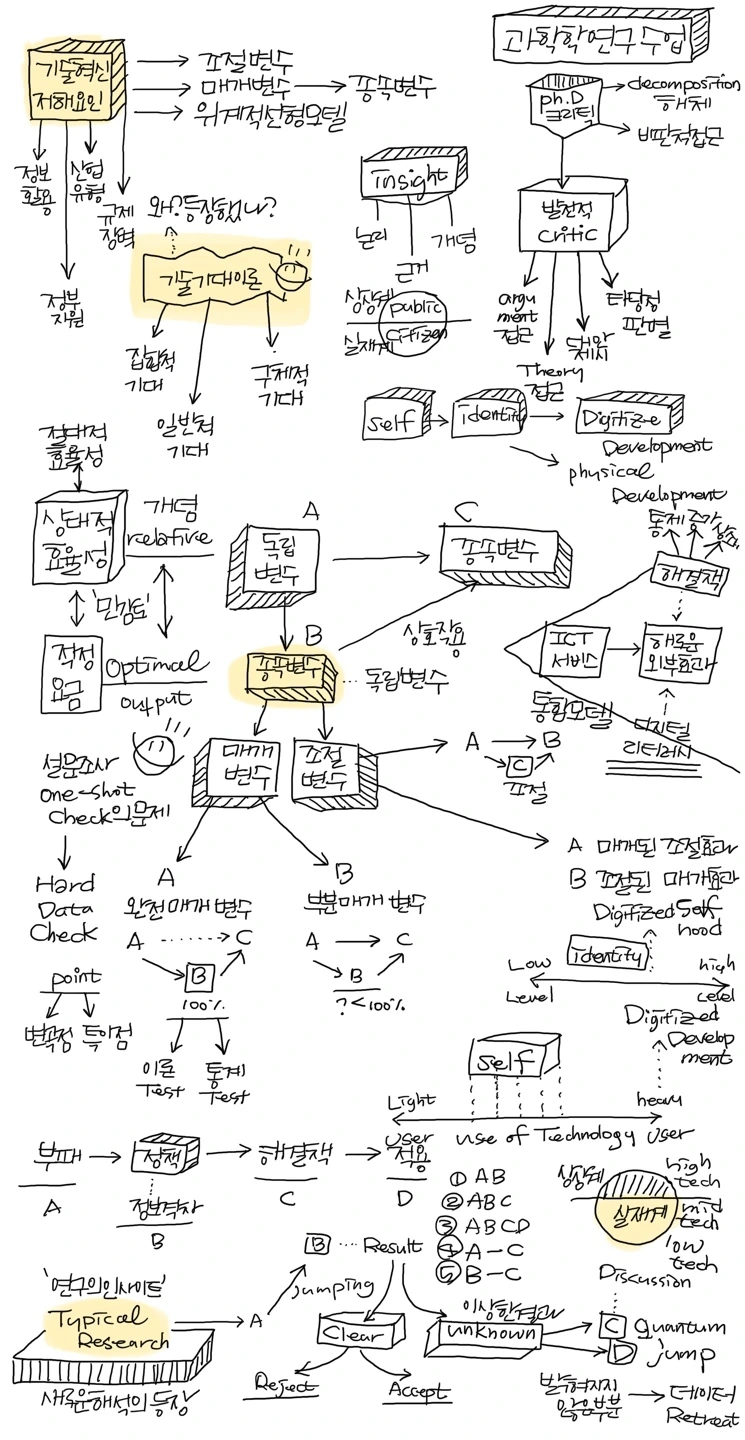 과학학연구수업
기술혁신
저해요인
조절변수
매개변수
종속변수
위계적선형모델
정보
활용
산업
유형
규제
장벽
정부
지원
ph.D
크리틱
decomposition
해체
비판적접근
발전적
critic
argu
ment
접근
Theory
접근
대안
제시
타당성
판별
insight
논리
근거
개념
상상계
public
실재계
citizen
왜?등장했나?
기술기대이론
집합적
기대
일반적
기대
구체적
기대
self
identity
Digitize
Development
physical
Development
절대적
효율성
상대적
효율성
개념
relative
'민감도'
적정
요금
Optimal
output
A
독립
변수
C
종속변수
B
종속변수
독립변수
상호작용
매개
변수
조절
변수
통제
증가
해결책
ICT
서비스
해로운
외부효과
통합모델
디지털
리터러시
A
B
C
조절
A 매개된 조절효과
B 조절된 매개효과
설문조사
one-shot
check의문제
Hard
Data
Check
point
변곡점
특이점
A
완전매개 변수
A
C
B
100%
이론
Test
통계
Test
B
부분매개 변수
A
C
B
?<100%
Digitized Self
hood
identity
Low
Level
high
Digitized
Develop
ment
self
Light
User
use of Technology
heavy
User
부패
A
정책
정보격차
B
해결책
C
적용
D
① AB
② ABC
③ ABCD
④ A-C
⑤ B-C
상상계
실재계
high
tech
mid
tech
low
tech
'연구의인사이트'
Typical
Research
새로운해석의등장
A
jumping
B
Result
Clear
Reject
Accept
이상한결과
unknown
Discussion
C
quantum
D
jump
밝혀지지
않은부분
데이터
Retreat